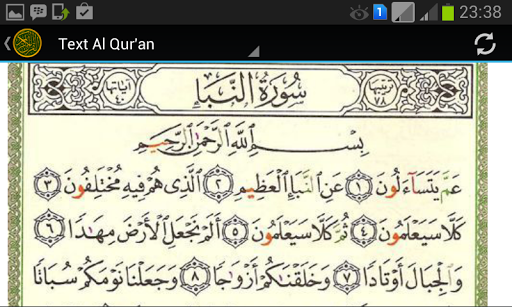 23:38
Text Al Qur'an
ترتيبها ٧٨ سُورَةُ النَّبَإِ آياتها ٤٠
بِسْمِ اللَّهِ الرَّحْمَٰنِ الرَّحِيمِ
عَمَّ يَتَسَآءَلُونَ ١ عَنِ النَّبَإِ الْعَظِيمِ ٢ الَّذِي هُمْ فِيهِ مُخْتَلِفُونَ ٣
كَلَّا سَيَعْلَمُونَ ٤ ثُمَّ كَلَّا سَيَعْلَمُونَ ٥ أَلَمْ نَجْعَلِ الْأَرْضَ مِهَٰدًا ٦
وَالْجِبَالَ أَوْتَادًا ٧ وَخَلَقْنَٰكُمْ أَزْوَٰجًا ٨ وَجَعَلْنَا نَوْمَكُمْ سُبَاتًا